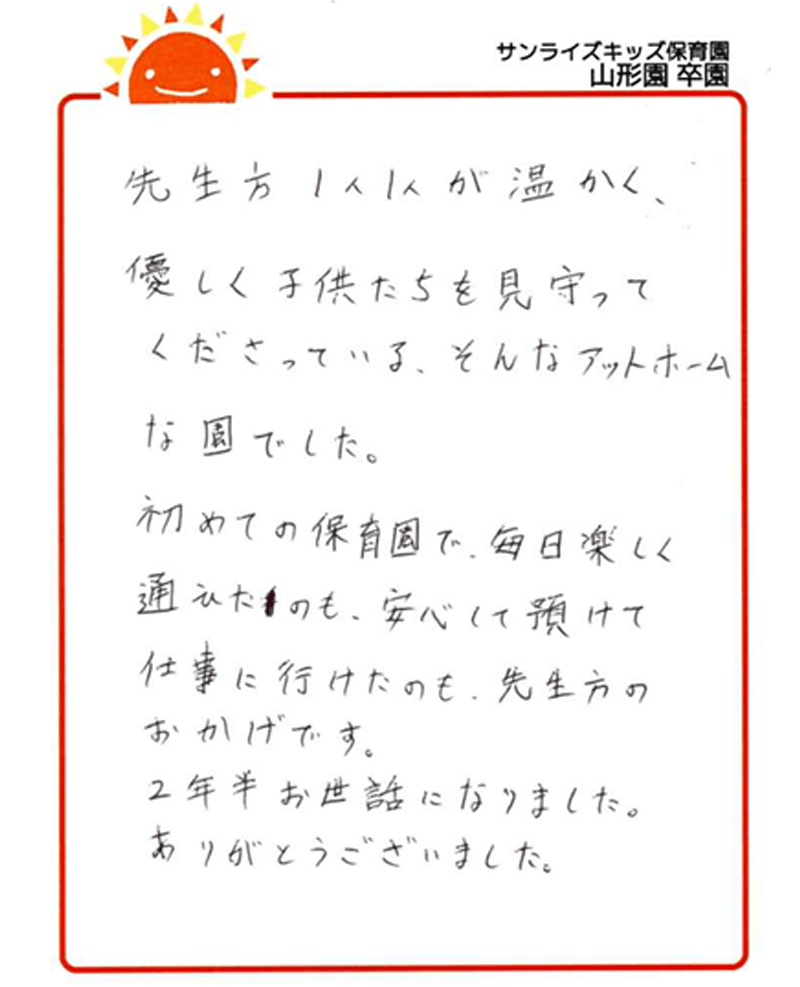 サンライズキッズ保育園
山形園 卒園
先生方1人1人が温かく、
優しく子供たちを見守って
くださっている、そんなアットホーム
な園でした。
初めての保育園で、毎日楽しく
通えたのも、安心して預けて
仕事に行けたのも、先生方の
おかげです。
2年半お世話になりました。
ありがとうございました。